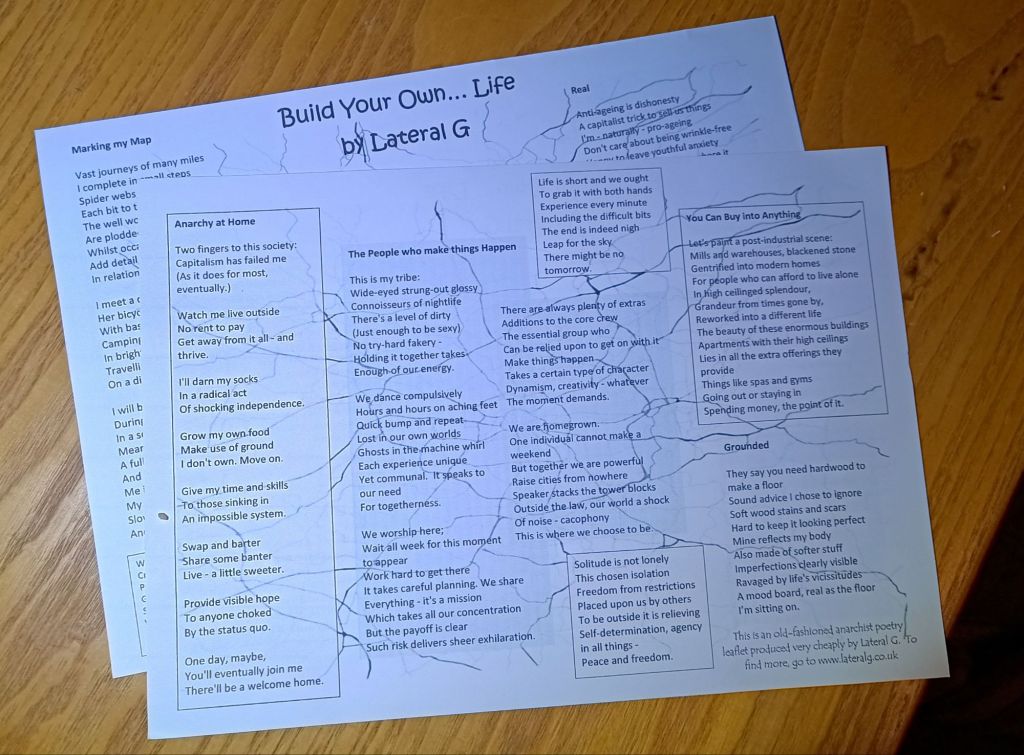 Build Your Own... Life
by Lateral G
Marking my Map
Vast journeys of many miles
I complete in small steps
Spider webs
Each bit to t
The well wo
Are plodde
Whilst occa
Add detail
In relation
I meet a
Her bicyc
With bas
Camping
In brigh
Travelli
On a di
I will b
During
In a
Mear
A full
And
Me
My
Slov
An
Real
Anti-ageing is dishonesty
A capitalist trick to sell us things
I'm - naturally - pro-ageing
Don't care about being wrinkle-free
to leave youthful anxiety
Anarchy at Home
Two fingers to this society:
Capitalism has failed me
(As it does for most,
eventually.)
Watch me live outside
No rent to pay
Get away from it all - and
thrive.
I'll darn my socks
In a radical act
Of shocking independence.
Grow my own food
Make use of ground
I don't own. Move on.
Give my time and skills
To those sinking in
An impossible system.
Swap and barter
Share some banter
Live - a little sweeter.
Provide visible hope
To anyone choked
By the status quo.
One day, maybe,
You'll eventually join me
There'll be a welcome home.
The People who make things Happen
This is my tribe:
Wide-eyed strung-out glossy
Connoisseurs of nightlife
There's a level of dirty
(Just enough to be sexy)
No try-hard fakery -
Holding it together takes
Enough of our energy.
We dance compulsively
Hours and hours on aching feet
Quick bump and repeat
Lost in our own worlds
Ghosts in the machine whirl
Each experience unique
Yet communal. It speaks to
our need
For togetherness.
We worship here;
Wait all week for this moment
to appear
Work hard to get there
It takes careful planning. We share
Everything - it's a mission
Which takes all our concentration
But the payoff is clear
Such risk delivers sheer exhilaration.
Life is short and we ought
To grab it with both hands
Experience every minute
Including the difficult bits
The end is indeed nigh
Leap for the sky
There might be no
tomorrow.
There are always plenty of extras
Additions to the core crew
The essential group who
Can be relied upon to get on with it
Make things happen
Takes a certain type of character
Dynamism, creativity - whatever
The moment demands.
We are homegrown.
One individual cannot make a
weekend
But together we are powerful
Raise cities from nowhere
Speaker stacks the tower blocks
Outside the law, our world a shock
Of noise - cacophony
This is where we choose to be.
Solitude is not lonely
This chosen isolation
Freedom from restrictions
Placed upon us by others
To be outside it is relieving
Self-determination, agency
in all things -
Peace and freedom.
You Can Buy into Anything
Let's paint a post-industrial scene:
Mills and warehouses, blackened stone
Gentrified into modern homes
For people who can afford to live alone
In high ceilinged splendour,
Grandeur from times gone by,
Reworked into a different life
The beauty of these enormous buildings
Apartments with their high ceilings
Lies in all the extra offerings they
provide
Things like spas and gyms
Going out or staying in
Spending money, the point of it.
Grounded
They say you need hardwood to
make a floor
Sound advice I chose to ignore
Soft wood stains and scars
Hard to keep it looking perfect
Mine reflects my body
Also made of softer stuff
Imperfections clearly visible
Ravaged by life's vicissitudes
A mood board, real as the floor
I'm sitting on.
This is an old-fashioned anarchist poetry
leaflet produced very cheaply by Lateral G. To
find more, go to www.lateralg.co.uk